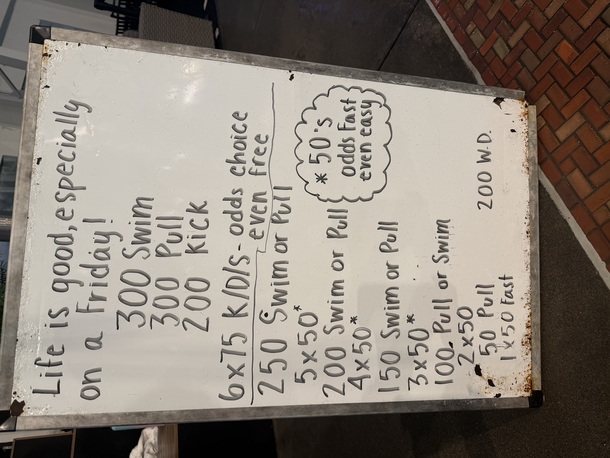 Life is good, especially
on a Friday!
300 Swim
300 Pull
200 Kick
6x75 K/D/S - odds choice
even free
250 Swim or Pull
5x50*
200 Swim or Pull
4x50*
150 Swim or Pull
3x50*
100 Pull or Swim
2x50
50 Pull
1x50 Fast
* 50's
odds Fast
even easy
200 W.D.